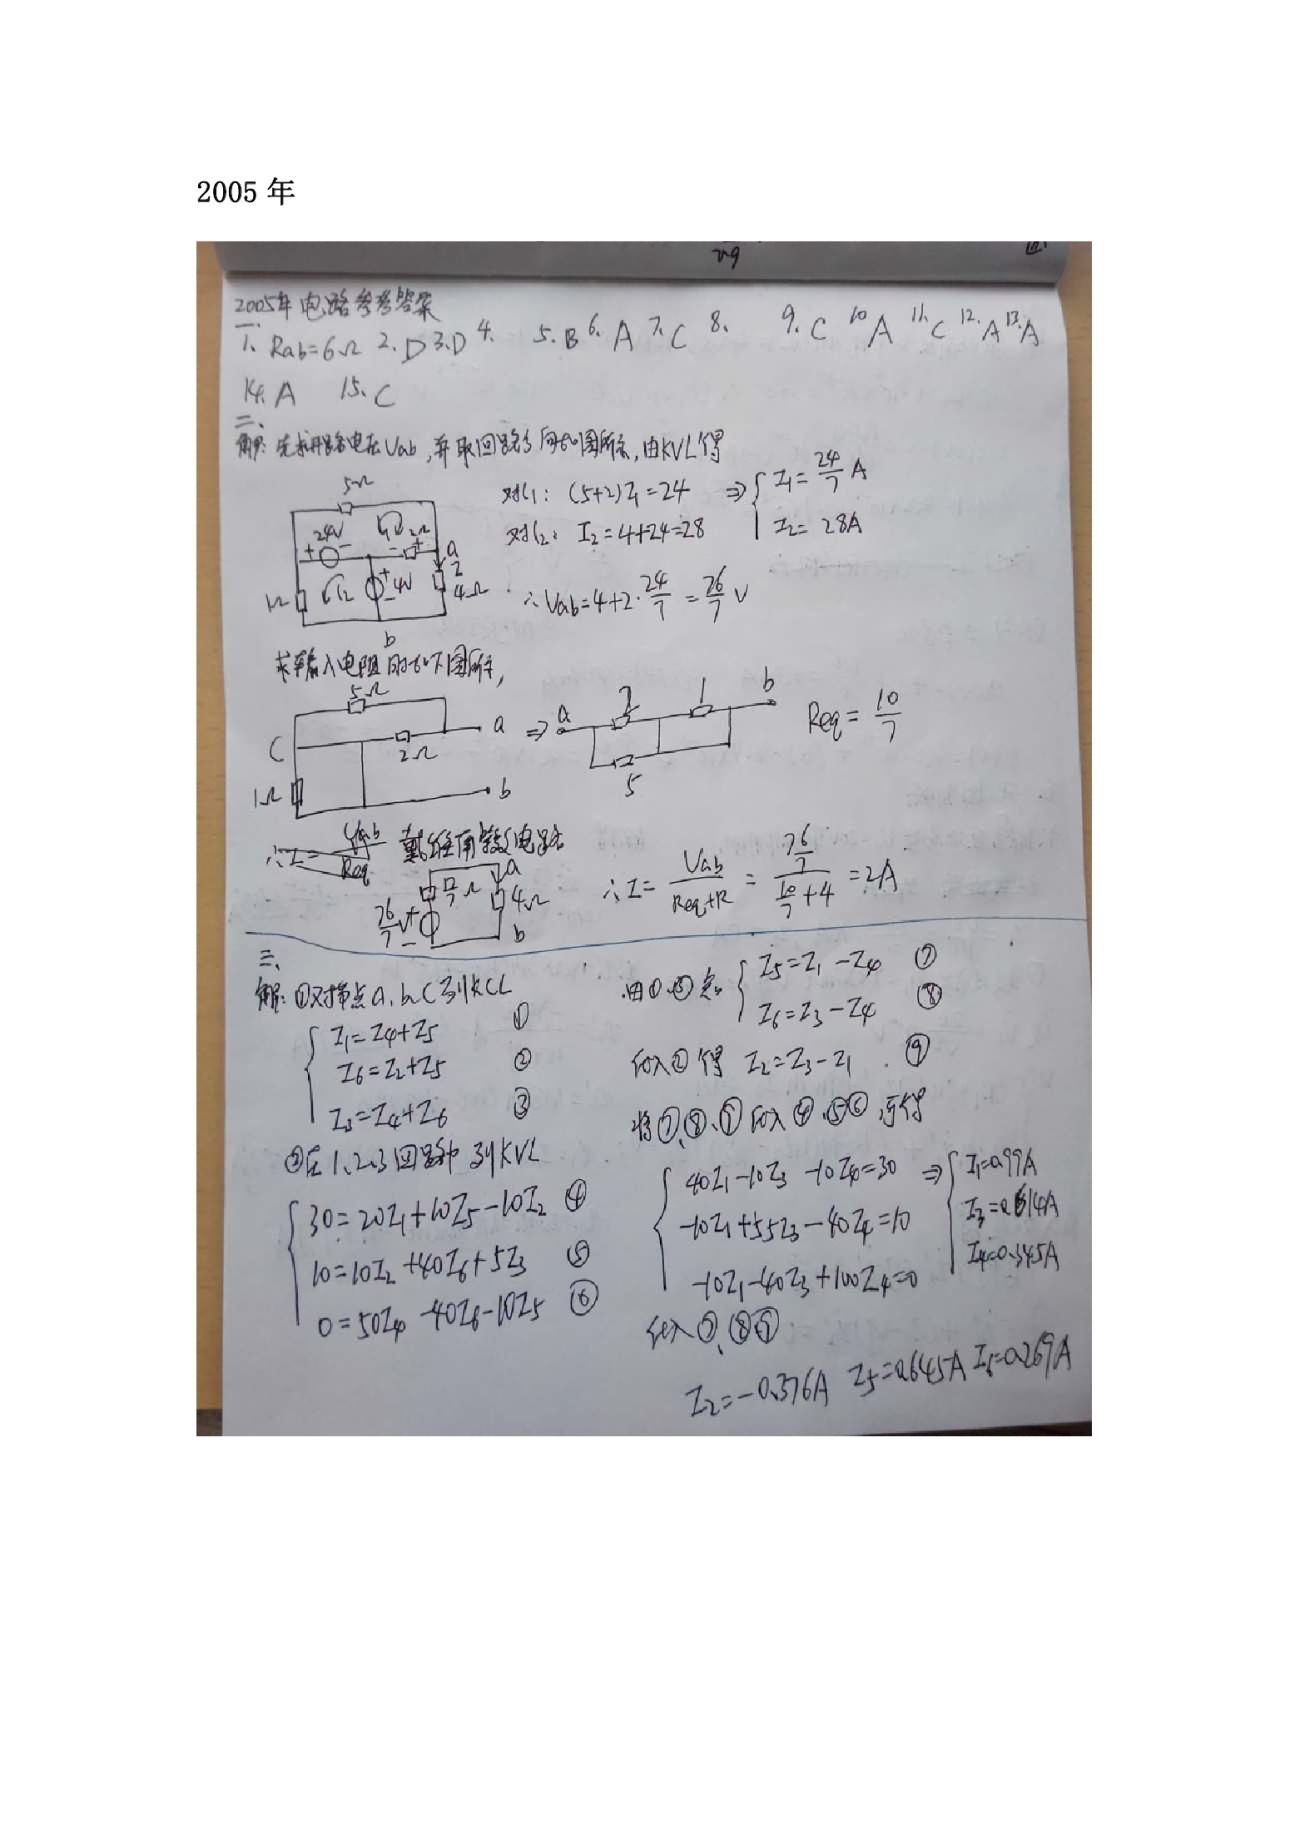 2005 年
2005年电路参考答案
一、
1. Rab=6Ω 2. D 3. D 4. 5. B 6. A 7. C 8. 9. C 10 A 11. C 12. A 13. A
14. A 15. C
二、
解: 先求开路电压Uab, 并取回路方向如图所示, 由KVL得
5Ω
24V
+ -
2Ω
- +
a
I
1Ω
I2
+ 4V -
4Ω
b
对l1: (5+2)I1=24 ⇒ { I1=24/7 A
对l2: I2=4+24=28 I2=28A
∴Uab=4+2·24/7=76/7 V
求输入电阻时如下图所示,
5Ω
C 2Ω a
1Ω b
⇒ a 2 1 b
5
Req=10/7
∴I=Uab/Req 戴维南等效电路
10/7 Ω a
76/7 V + - 4Ω
b
∴I=Uab/(Req+R)=(76/7)/(10/7+4)=2A
三、
解: ①对节点a、b、C列KCL
I1=I4+I5 ①
I6=I2+I5 ②
I3=I4+I6 ③
②在1、2、3回路中列KVL
30=20I1+10I5-10I2 ④
10=10I2+40I6+5I3 ⑤
0=50I4-40I6-10I5 ⑥
由①、③知 { I5=I1-I4 ⑦
I6=I3-I4 ⑧
代入②得 I2=I3-I1 ⑨
将⑦、⑧、⑨代入④、⑤⑥,可得
40I1-10I3-10I4=30 ⇒ { I1=0.99A
-10I1+55I3-40I4=10 I3=0.614A
-10I1-40I3+100I4=0 I4=0.345A
代入⑦、⑧⑨
I2=-0.376A I5=0.645A I6=0.269A